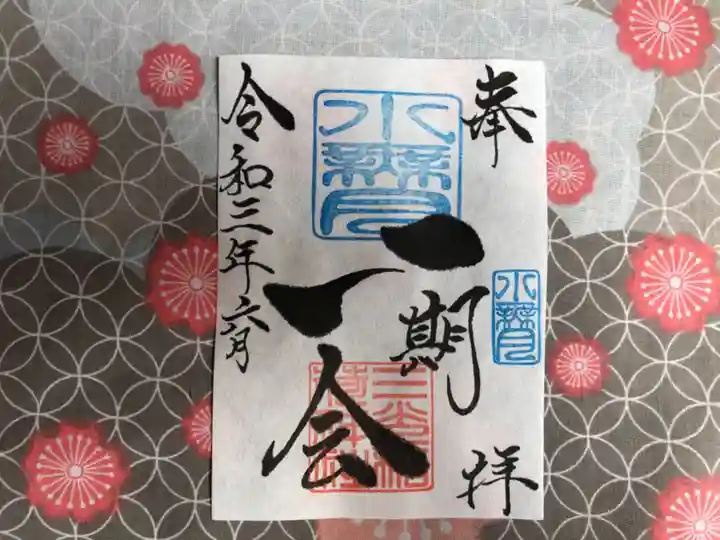 奉
拝
水無月
一期
一会
水無月
令和三年六月